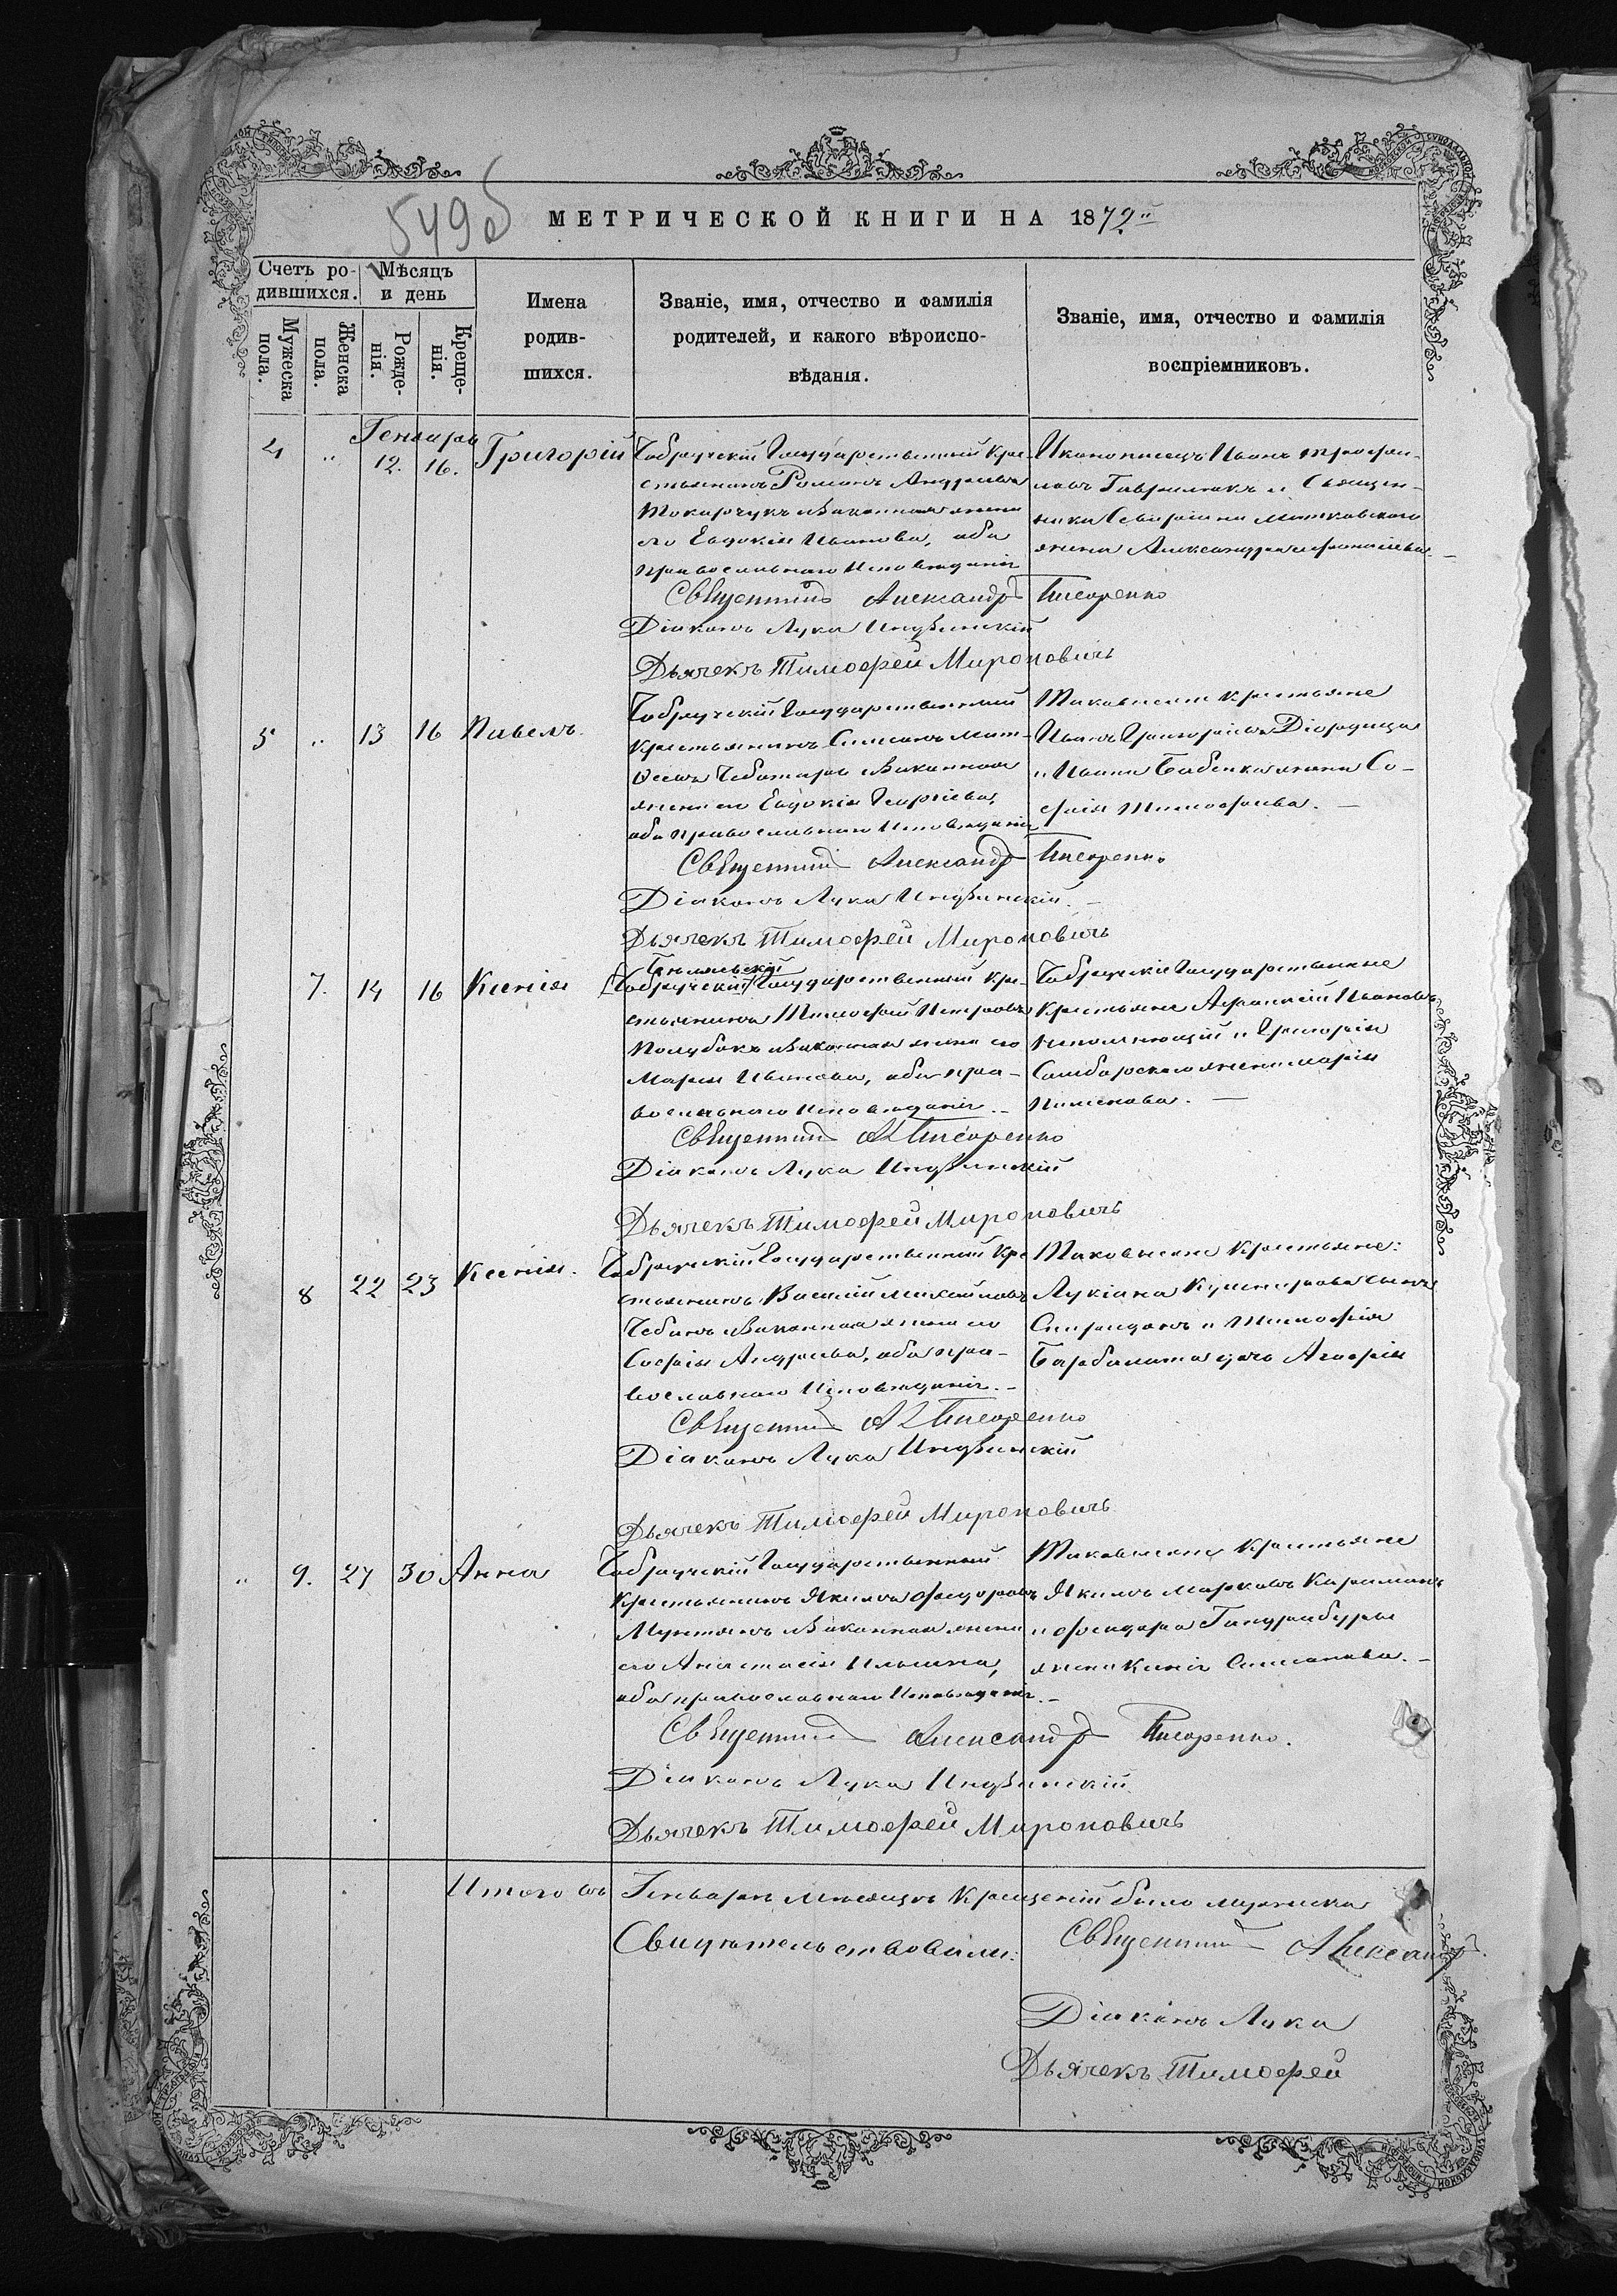 549об
МЕТРИЧЕСКОЙ КНИГИ НА 1872й
Счетъ ро-
дившихся.
Мѣсяцъ
и день
Мужеска
пола.
Женска
пола.
Рожде-
нія.
Креще-
нія.
Имена
родив-
шихся.
Званіе, имя, отчество и фамилія
родителей, и какого вѣроиспо-
вѣданія.
Званіе, имя, отчество и фамилія
воспріемниковъ.
Генваря
4 " 12. 16. Григорій
Чобручскій Государственный Кре-
стьянинъ Романъ Андреевъ
Токарчукъ и Законная жена
его Евдокія Иванова, оба
православнаго Исповѣданія
Иконописецъ Иванъ Трофи-
мовъ Гаврилюкъ и Священ-
ника Севиріяна Матковскаго
жена Александра
Священникъ Александръ Писоренко
Діаконъ Лука
Дьячекъ Тимофей Мироновичъ
5 " 13 16 Павелъ.
Чобручскій Государственный
Крестьянинъ Симеонъ Мат-
ѳеевъ Чеботарь и Законная
жена его Евдокія Георгіева,
оба православнаго Исповѣданія
Таковые же Крестьяне
Иванъ Григорьевъ Діордица
и Ивана Бабенка жена Со-
фія Тимофеева. —
Священникъ Александръ Писоренко
Діаконъ Лука
Дьячекъ Тимофей Мироновичъ
7. 14 16 Ксенія
Чобручскій Государственный Кре-
стьянинъ Тимофей Петровъ
Полубокъ и Законная жена его
Марія Ивановна, оба пра-
вославнаго Исповѣданія. —
Чобручскіе Государственные
Крестьяне Ивановъ
и Григорія
Самборскаго жена Марія
Пименова. —
Священникъ А Писоренко
Діаконъ Лука
Дьячекъ Тимофей Мироновичъ
8 22 23 Ксенія.
Чобручскій Государственный Кре-
стьянинъ Василій Михайловъ
Чебанъ и Законная жена его
Софія Андреева, оба пра-
вославнаго Исповѣданія. —
Таковые же Крестьяне:
Лукіана Кушнирова сынъ
Спиридонъ и Тимофея
Барбалата дочь Агафія
Священникъ А Писоренко
Діаконъ Лука
Дьячекъ Тимофей Мироновичъ
" 9. 27 30 Анна
Чобручскій Государственный
Крестьянинъ Якимъ Федоровъ
Мунтянъ и Законная жена
его Анастасія Ильина,
оба православнаго Исповѣданія. —
Таковые же Крестьяне
Якимъ Марковъ Караманъ
и Феодора Гандрабуры
жена Ксенія Симеонова. —
Священникъ Александръ Писоренко.
Діаконъ Лука
Дьячекъ Тимофей Мироновичъ
Итого въ Генварѣ мѣсяцѣ крещеній было мужеска
Свидѣтельствовали:
Священникъ Александръ
Діаконъ Лука
Дьячекъ Тимофей